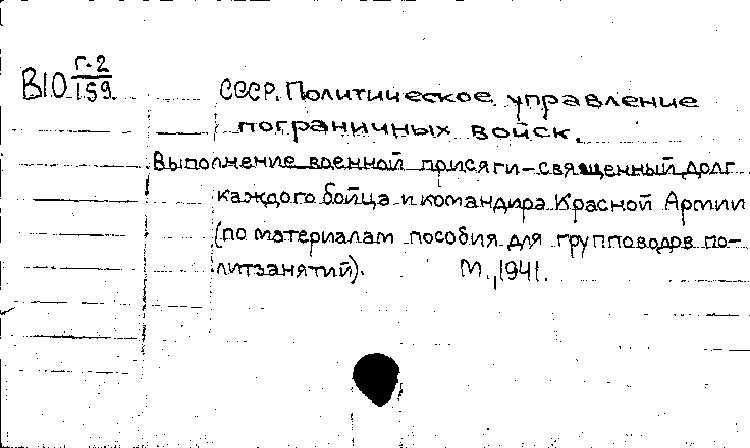 В10 Г-2/159.
СССР. Политическое управление
пограничных войск.
Выполнение военной присяги-священный долг
каждого бойца и командира Красной Армии
(по материалам пособия для групповодов по-
литзанятий). М., 1941.